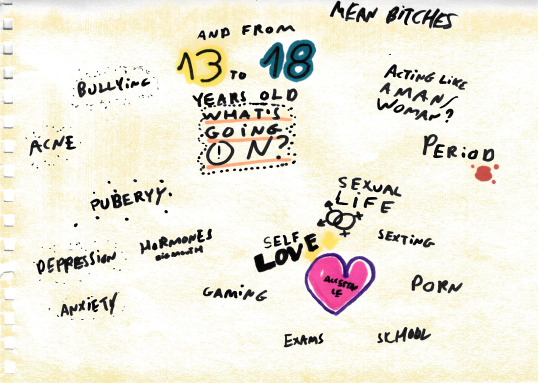 MEAN BITCHES
AND FROM
13 TO 18
YEARS OLD
WHAT'S
GOING
ON?
BULLYING
ACTING LIKE
A MAN/
WOMAN?
ACNE
PERIOD
PUBERYY.
SEXUAL
LIFE
SELF
LOVE
SEXTING
HORMONES
DEPRESSION
ANXIETY
GAMING
PORN
EXAMS
SCHOOL